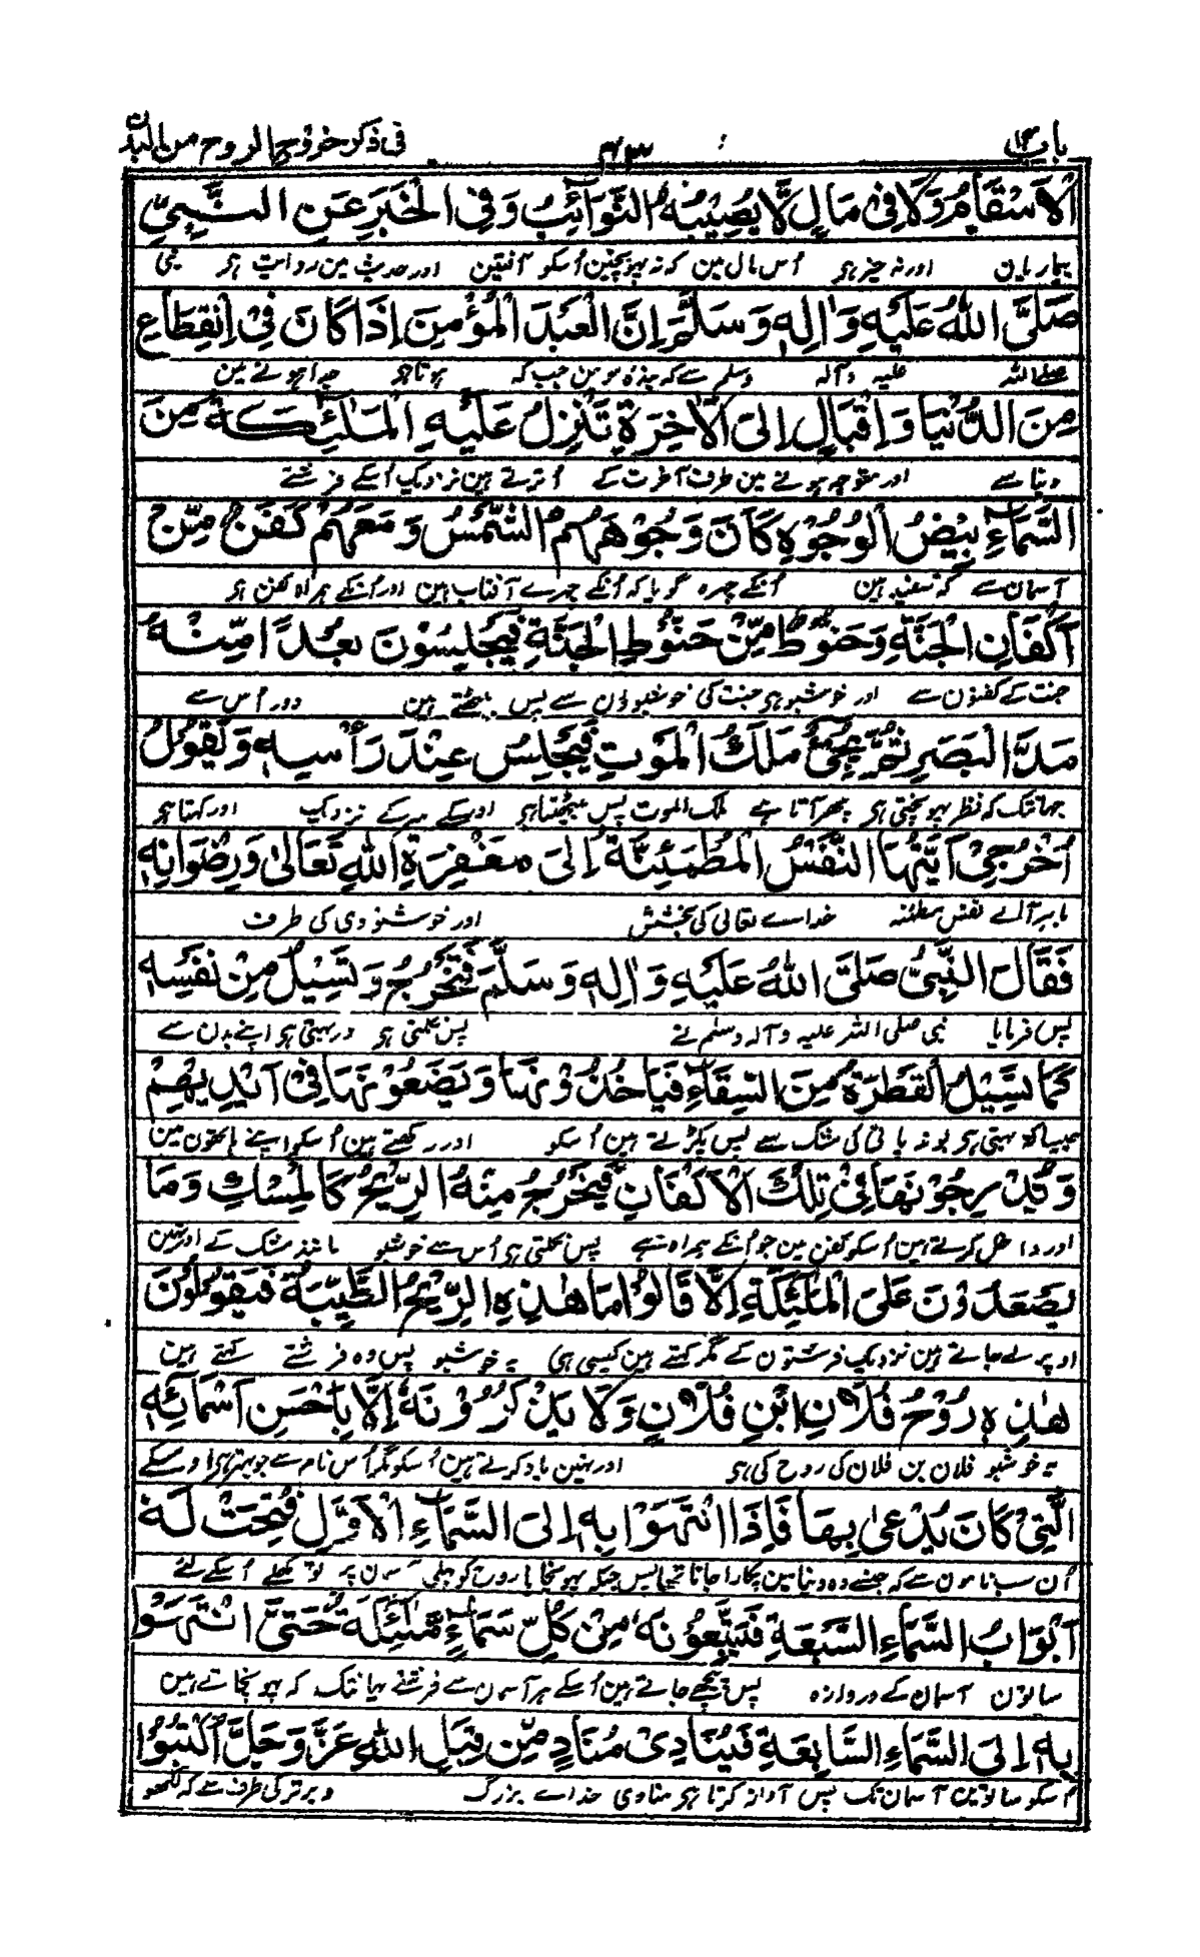 باب ۱۳ ۴۳ فی ذکر خروج الروح من البدن
اَلْاَسْقَامُ وَلَا فِیْ مَالٍ لَّا یُصِیْبُهُ النَّوَآئِبُ وَفِی الْخَبَرِ عَنِ النَّبِیِّ
بیماریان اور نہ خیر ہو اُس مال مین کہ نہ پہونچین اُسکو آفتین اور حدیث مین روایت ہو نبی
صَلَّی اللهُ عَلَیْهِ وَاٰلِهٖ وَسَلَّمَ اِنَّ الْعَبْدَ الْمُؤْمِنَ اِذَا كَانَ فِیْ اِنْقِطَاعٍ
صلے اللہ علیہ وآلہ وسلم سے کہ بندہ مومن جب کہ ہوتا ہو جدا ہونے مین
مِنَ الدُّنْیَا وَاِقْبَالٍ اِلَی الْاٰخِرَةِ تَنْزِلُ عَلَیْهِ الْمَلٰٓئِكَةُ مِنَ
دنیا سے اور متوجہ ہونے مین طرف آخرت کے اُترتے ہین نزدیک اُسکے فرشتے
السَّمَآءِ بِیْضُ الْوُجُوْهِ كَاَنَّ وُجُوْهَهُمُ الشَّمْسُ وَمَعَهُمْ كَفَنٌ مِّنْ
آسمان سے کہ سفید ہین اُنکے چہرہ گویا کہ اُنکے چہرے آفتاب ہین اور اُنکے ہمراہ کفن ہو
اَكْفَانِ الْجَنَّةِ وَحَنُوْطٌ مِّنْ حَنُوْطِ الْجَنَّةِ فَیَجْلِسُوْنَ بُعْدًا مِّنْهُ
جنت کے کفنون سے اور خوشبو ہو جنت کی خوشبوؤن سے پس بیٹھتے ہین دور اُس سے
مَدَّ الْبَصَرِ ثُمَّ یَجِیْٓئُ مَلَكُ الْمَوْتِ فَیَجْلِسُ عِنْدَ رَاْسِهٖ وَیَقُوْلُ
جہانتک کہ نظر پہونچتی ہو پھر آتا ہے ملک الموت پس بیٹھتا ہو اوسکے سر کے نزدیک اور کہتا ہو
اُخْرُجِیْ اَیَّتُهَا النَّفْسُ الْمُطْمَئِنَّةُ اِلٰی مَغْفِرَةِ اللهِ تَعَالٰی وَرِضْوَانِهٖ
باہر آ اے نفس مطمئنہ خداے تعالی کی بخشش اور خوشنودی کی طرف
فَقَالَ النَّبِیُّ صَلَّی اللهُ عَلَیْهِ وَاٰلِهٖ وَسَلَّمَ فَتَخْرُجُ وَتَسِیْلُ مِنْ نَفْسِهٖ
پس فرمایا نبی صلی اللہ علیہ وآلہ وسلم نے پس نکلتی ہو اور بہتی ہو اپنے بدن سے
كَمَا تَسِیْلُ الْقَطْرَةُ مِنَ السِّقَآءِ فَیَاْخُذُوْنَهَا وَیَضَعُوْنَهَا فِیْ اَیْدِیْهِمْ
جیسا کہ بہتی ہو بوند پانی کی مشک سے پس پکڑتے ہین اُسکو اور رکھتے ہین اُسکو اپنے ہاتھون مین
وَیُدْرِجُوْنَهَا فِیْ تِلْكَ الْاَكْفَانِ فَیَخْرُجُ مِنْهُ الرِّیْحُ كَالْمِسْكِ وَمَا
اور داخل کرتے ہین اُسکو کفن مین جو اُنکے ہمراہ ہے پس نکلتی ہو اُس سے خوشبو مانند مشک کے اور نہین
یَصْعَدُوْنَ عَلَی الْمَلٰٓئِكَةِ اِلَّا قَالُوْا مَا هٰذِهِ الرِّیْحُ الطَّیِّبَةُ فَیَقُوْلُوْنَ
اوپر لے جاتے ہین نزدیک فرشتون کے مگر کہتے ہین کیسی ہی یہ خوشبو پس وہ فرشتے کہتے ہین
هٰذِهٖ رُوْحُ فُلَانِ ابْنِ فُلَانٍ وَلَا یَذْكُرُوْنَهٗ اِلَّا بِاَحْسَنِ اَسْمَآئِهٖ
یہ خوشبو فلان بن فلان کی روح کی ہو اور نہین یاد کرتے ہین اُسکو مگر اُس نام سے جو بہتر ہو اوسکے
الَّتِیْ كَانَ یُدْعٰی بِهَا فَاِذَا انْتَهَوْا بِهٖ اِلَی السَّمَآءِ الْاَوَّلِ فُتِحَتْ لَهٗ
اُن سب نامون سے کہ جنسے وہ دنیا مین پکارا جاتا تھا پس جبکہ پہونچایا روح کو پہلی آسمان پر تو کھلے اُسکے لئے
اَبْوَابُ السَّمَآءِ السَّبْعَةِ فَیَتَّبِعُوْنَهٗ مِنْ كُلِّ سَمَآءٍ مَّلٰٓئِكَةٌ حَتّٰی انْتَهَوْا
ساتون آسمان کے دروازہ پس پیچھے جاتے ہین اُسکے ہر آسمان سے فرشتے یہانتک کہ پہونچاتے ہین
بِهٖ اِلَی السَّمَآءِ السَّابِعَةِ فَیُنَادِیْ مُنَادٍ مِّنْ قِبَلِ اللهِ عَزَّ وَجَلَّ اُكْتُبُوْا
اُسکو ساتوین آسمان تک پس آواز کرتا ہو منادی خداے بزرگ و برتر کی طرف سے کہ لکھو